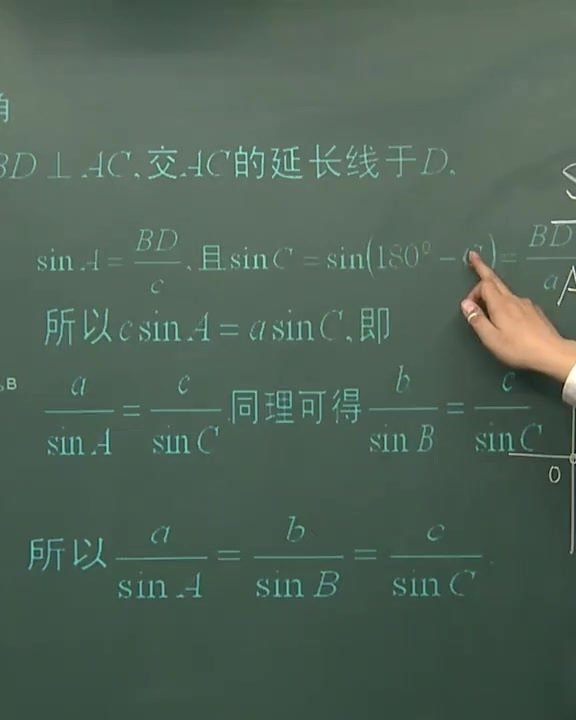 角
BD⊥AC,交AC的延长线于D.
sin A = BD/c, 且sin C = sin(180° − C) = BD/a
所以c sin A = a sin C,即
B
a/sin A = c/sin C 同理可得 b/sin B = c/sin C
O
所以 a/sin A = b/sin B = c/sin C.